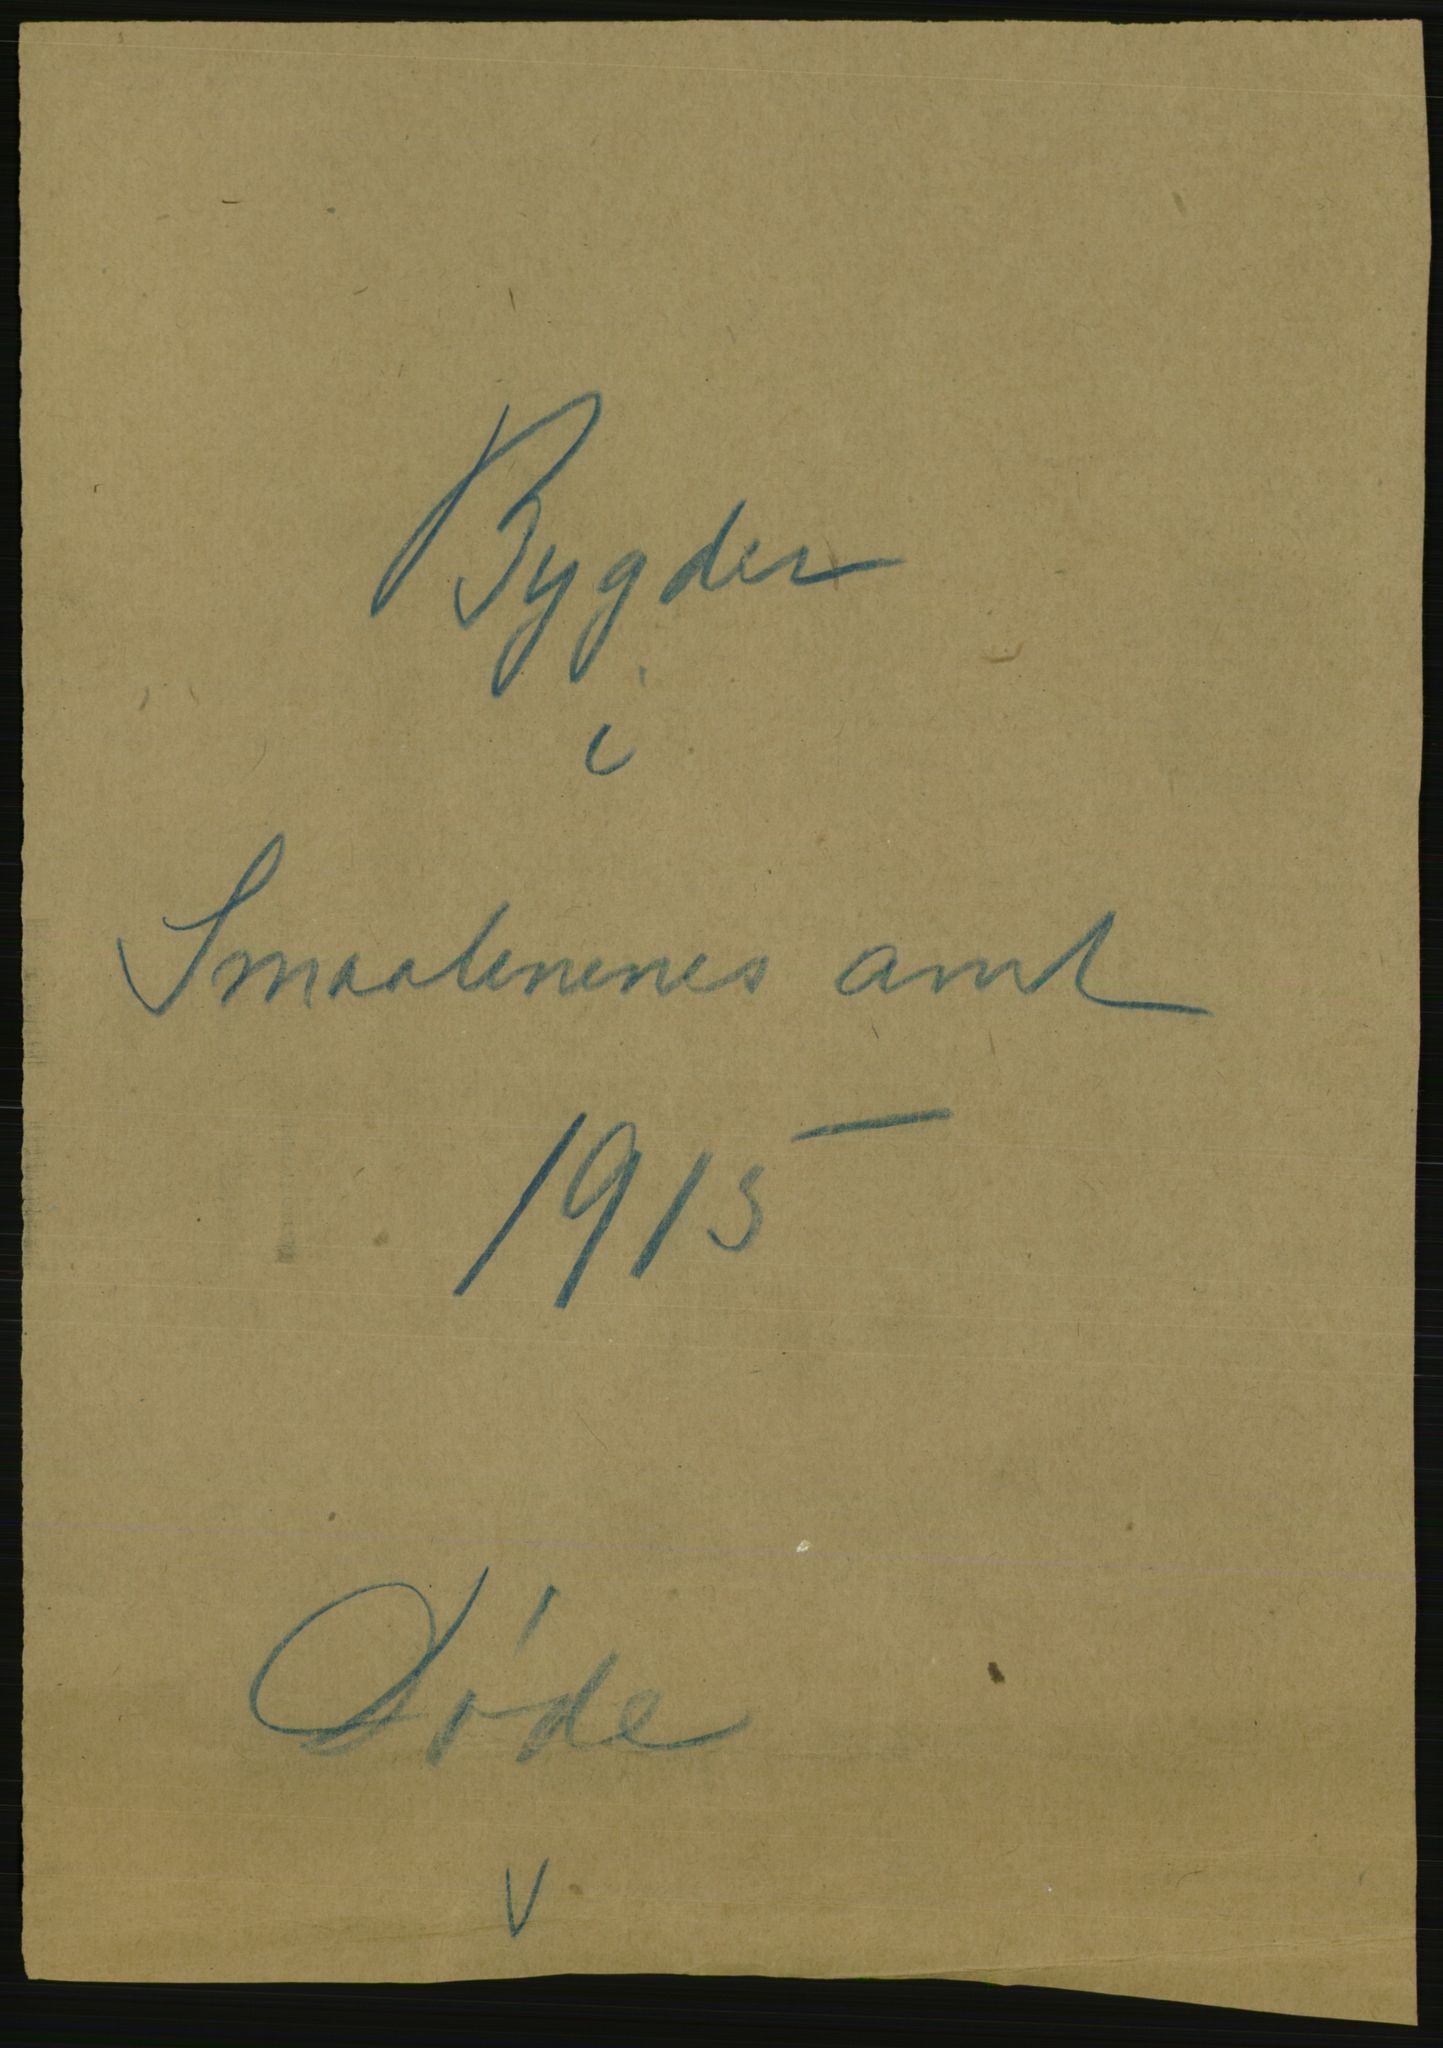 Bygder
i
Smaalenenes amt
1915
Døde
V